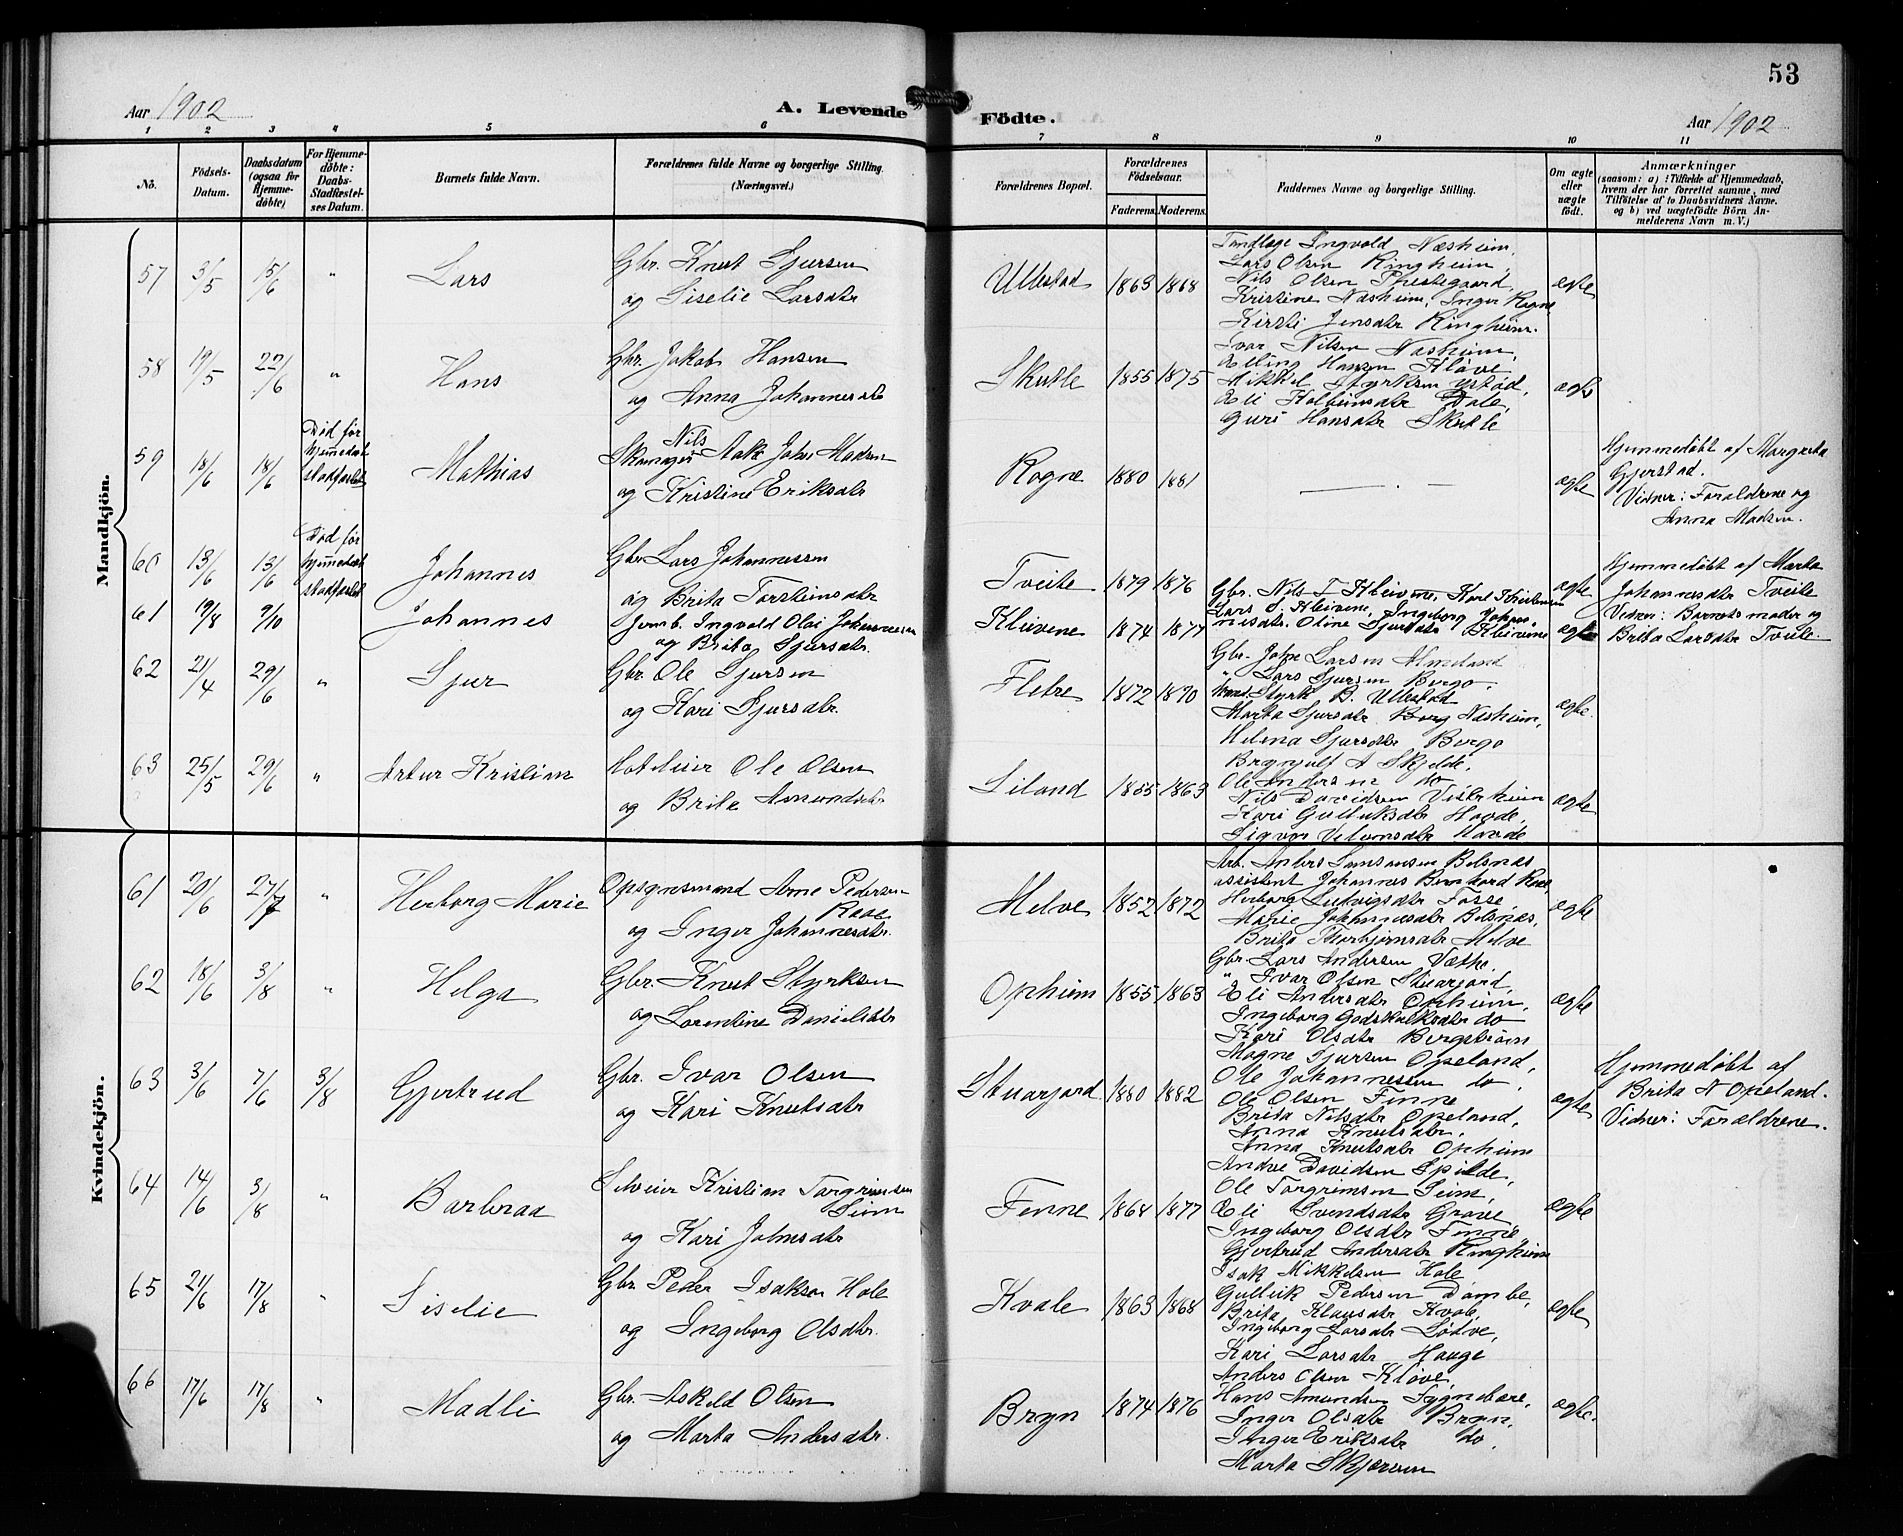 53
Aar 1902
A. Levende Födte.
Aar 1902
1 2 3 4 5 6 7 8 9 10 11
No.
Födsels-Datum.
Daabsdatum (ogsaa for Hjemme-döbte)
For Hjemme-döbte: Daabs-Stadfæstel-ses Datum.
Barnets fulde Navn.
Forældrenes fulde Navne og borgerlige Stilling. (Næringsvei.)
Forældrenes Bopæl.
Forældrenes Födselsaar.
Faderens. Moderens.
Faddernes Navne og borgerlige Stilling.
Om ægte eller uægte födt.
Anmærkninger
(saasom: a) i Tilfælde af Hjemmedaab,
hvem der har forrettet samme, med
Tilföielse af to Daabsvidners Navne.
og b) ved uægtefödte Börn An-
melderens Navn m. V.)
Mandkjön.
57 3/5 15/6 " Lars
Gbr. Knut Sjursen
og Siselie Larsdtr
Ullestad 1863 1868
Tandlæge Ingvald Næsheim,
Lars Olsen Ringheim,
Nils Olsen Prestegaard,
Kristine Næsheim, Inger Rogne
Kirsti Jensdtr Ringheim.
ægte
58 19/5 22/6 " Hans
Gbr. Jakob Hansen
og Anna Johannesdtr
Skutle 1855 1875
Ivar Nilsen Næsheim,
Elling Hansen Kløve
Mikkel Styrksen Ystad,
Eli Kolbeinsdtr Dale,
Guri Hansdtr Skutle
ægte
59 18/6 18/6
Død før
hjemmedaab
stadfæstet
Mathias
Nils
Skomager Aake John Madsen
og Kristine Eriksdtr
Rogne 1880 1881
ægte
Hjemmedøbt af Margreta
Gjerstad.
Vidner: Forældrene og
Anna Madsen.
60 13/6 13/6
Død før
hjemmedaab
stadfæstet
Johannes
Gbr Lars Johannessen
og Brita Torsteinsdtr
Tveite 1879 1876
ægte
Hjemmedøbt af Marta
Johannesdtr Tveite
Vidner: Barnets moder og
Brita Larsdtr Tveite
61 19/8 9/10 Johannes
Jernb. Ingvald Olai Johannessen
og Brita Sjursdtr.
Kleivene 1874 1877
Gbr. Nils T Kleivene, Karl Kristensen
Lars S. Kleivene, Ingeborg Johan-
nesdtr. Oline Sjursdtr Kleivene
ægte
62 21/4 29/6 " Sjur
Gbr. Ole Sjursen
og Kari Sjursdtr.
Fletre 1872 1870
Gbr. John Larsen Almeland
" Lars Sjursen Bergo.
Styrk B. Ullestad
Marta Sjursdtr Borg Næsheim,
Helena Sjursdtr Bergo
ægte.
63 25/5 29/6 " Artur Kristian
Hotelieier Ole Olsen
og Brite Amundsdtr
Liland 1855 1863
Brynjulf A Skjelde.
Ole Andersen do
Nils Davidsen Vestrheim
Kari Gulleiksdtr Havde,
Sigvor Velomsdtr Havde
ægte
Kvindekjön.
61 20/6 27/7 " Herborg Marie
Opsynsmand Arne Pedersen
Raae
og Inger Johannesdtr.
Melve 1852 1872
Arb. Anders Samsonsen Bolsnæs
assistent Johannes Bernhard Raae
Herborg Ludvigsdtr Fosse
Marie Johannesdtr Bolsnæs,
Brita Thorbjørnsdtr Melve
ægte
62 18/6 3/8 " Helga
Gbr. Knut Styrksen
og Lorentine Danielsdtr
Opheim 1855 1863
Gbr. Lars Andersen Væthe.
" Ivar Olsen Stuarjord,
Eli Andersdtr Opheim,
Ingeborg Godskalksdtr do
Kari Olsdtr Bergstrøm
ægte
63 3/6 7/6 3/8 Gjertrud
Gbr. Ivar Olsen
og Kari Knutsdtr
Stuarjord 1880 1882
Magne Sjursen Opeland,
Ole Johannessen do,
Ole Olsen Finne
Brita Nilsdtr Opeland,
Anna Knutsdtr.
Anna Knutsdtr Opheim
ægte
Hjemmedøbt af
Brita N Opeland.
Vidner: Forældrene.
64 14/6 3/8 " Barbraa
Selveier Kristian Torgrimsen
Seim
og Kari Johnsdtr
Finne 1864 1877
Andve Davidsen Spilde,
Ole Torgrimsen Seim,
Eli Svendsdtr Grove
Ingeborg Olsdtr Finne,
Gjertrud Andersdtr Ringheim
ægte
65 21/6 17/8 " Siselie
Gbr. Peder Isaksen Hole
og Ingeborg Olsdtr.
Kvale 1863 1868
Isak Mikkelsen Hole
Gulleik Pedersen Dømbe,
Brita Klausdtr Kvale,
Ingeborg Larsdtr Løtve,
Kari Larsdtr Hauge
ægte
66 17/6 17/8 " Madli
Gbr. Askeld Olsen
og Marta Andersdtr.
Bryn 1874 1876
Anders Olsen Kløve,
Hans Amundsen Fygnebære,
Inger Olsdtr Bryn,
Inger Eriksdtr do,
Marta Skjerven
ægte.